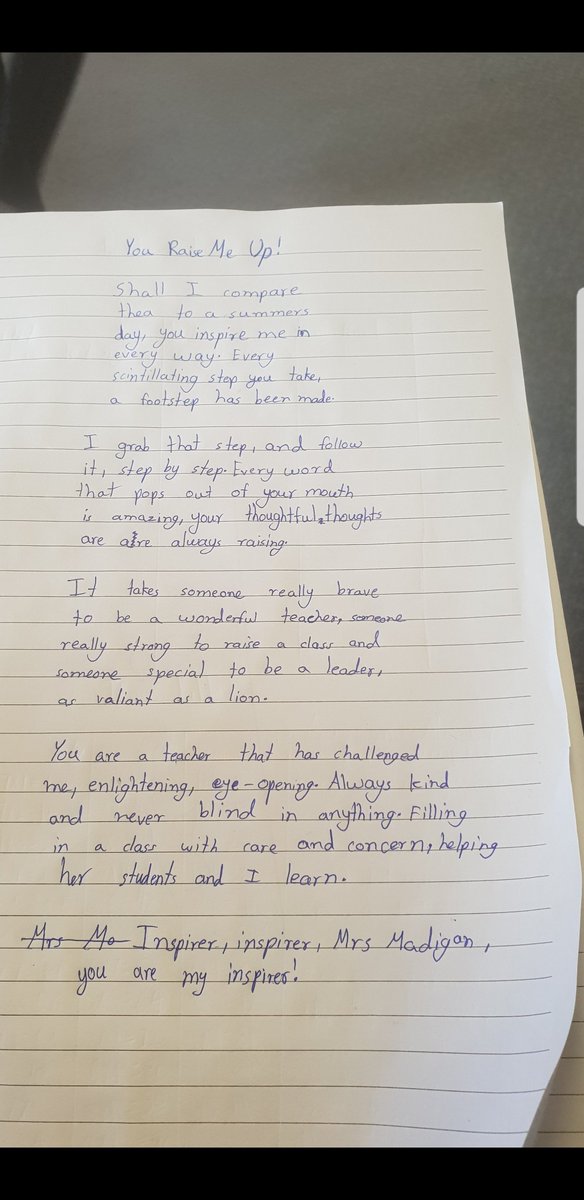 You Raise Me Up!
Shall I compare
thea to a summers
day, you inspire me in
every way. Every
scintillating step you take,
a footstep has been made.
I grab that step, and follow
it, step by step. Every word
that pops out of your mouth
is amazing, your thoughtful thoughts
are always raising.
It takes someone really brave
to be a wonderful teacher, someone
really strong to raise a class and
someone special to be a leader,
as valiant as a lion.
You are a teacher that has challenged
me, enlightening, eye-opening. Always kind
and never blind in anything. Filling
in a class with care and concern, helping
her students and I learn.
Mrs Ma Inspirer, inspirer, Mrs Madigan,
you are my inspirer!